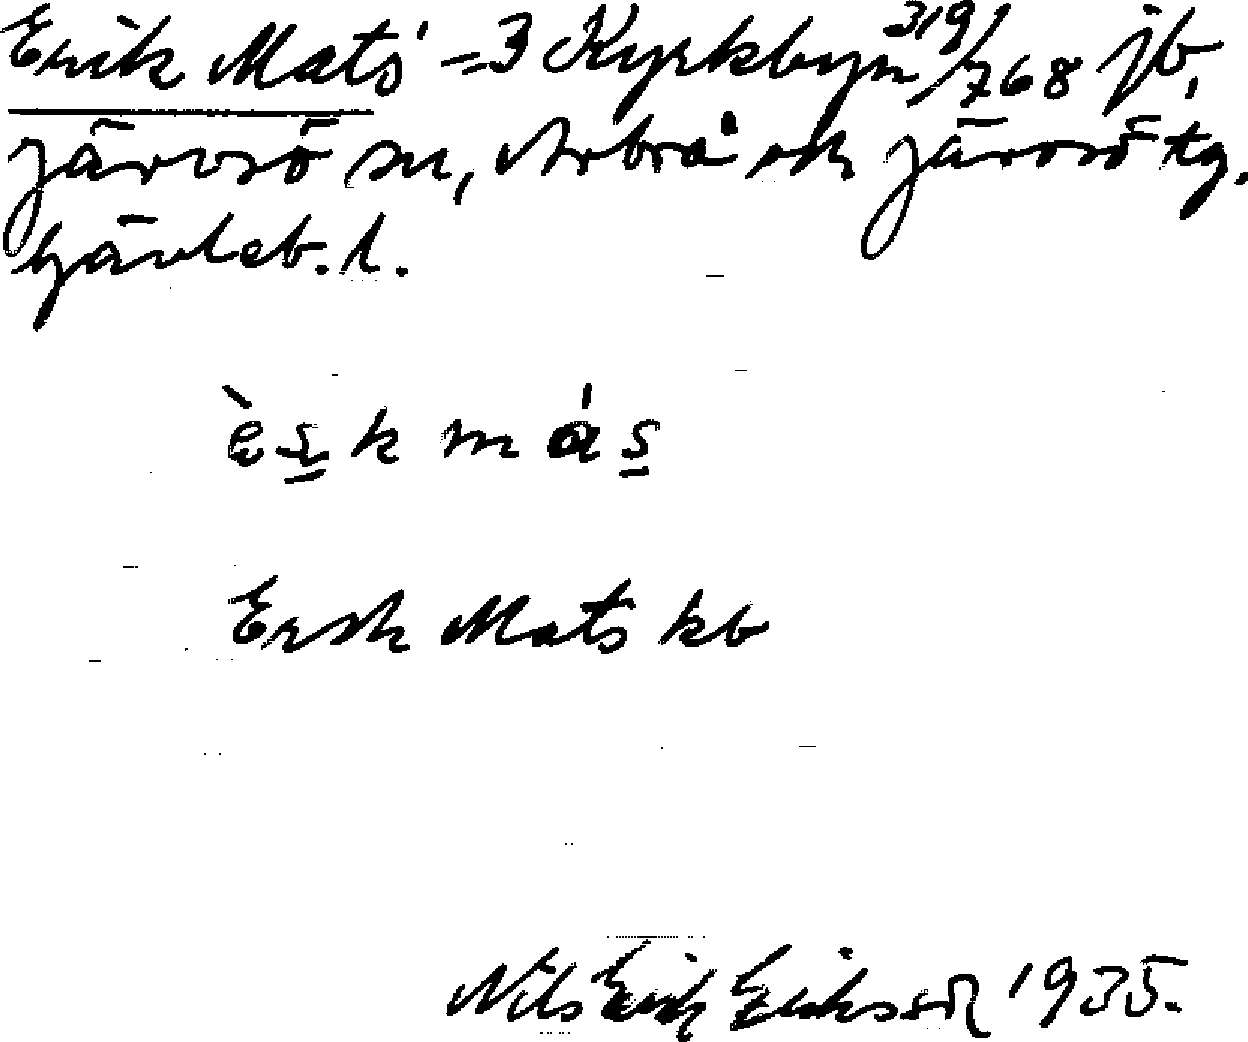 Erik Mats' =3 Kyrkbyn 319/768 jb,
Järvsö sn, Arbrå och Järvsö tg.
Gävleb. l.
è s̲ k m á s̲
Ersk Mats kb
Nils Erik Eriksson 1935.